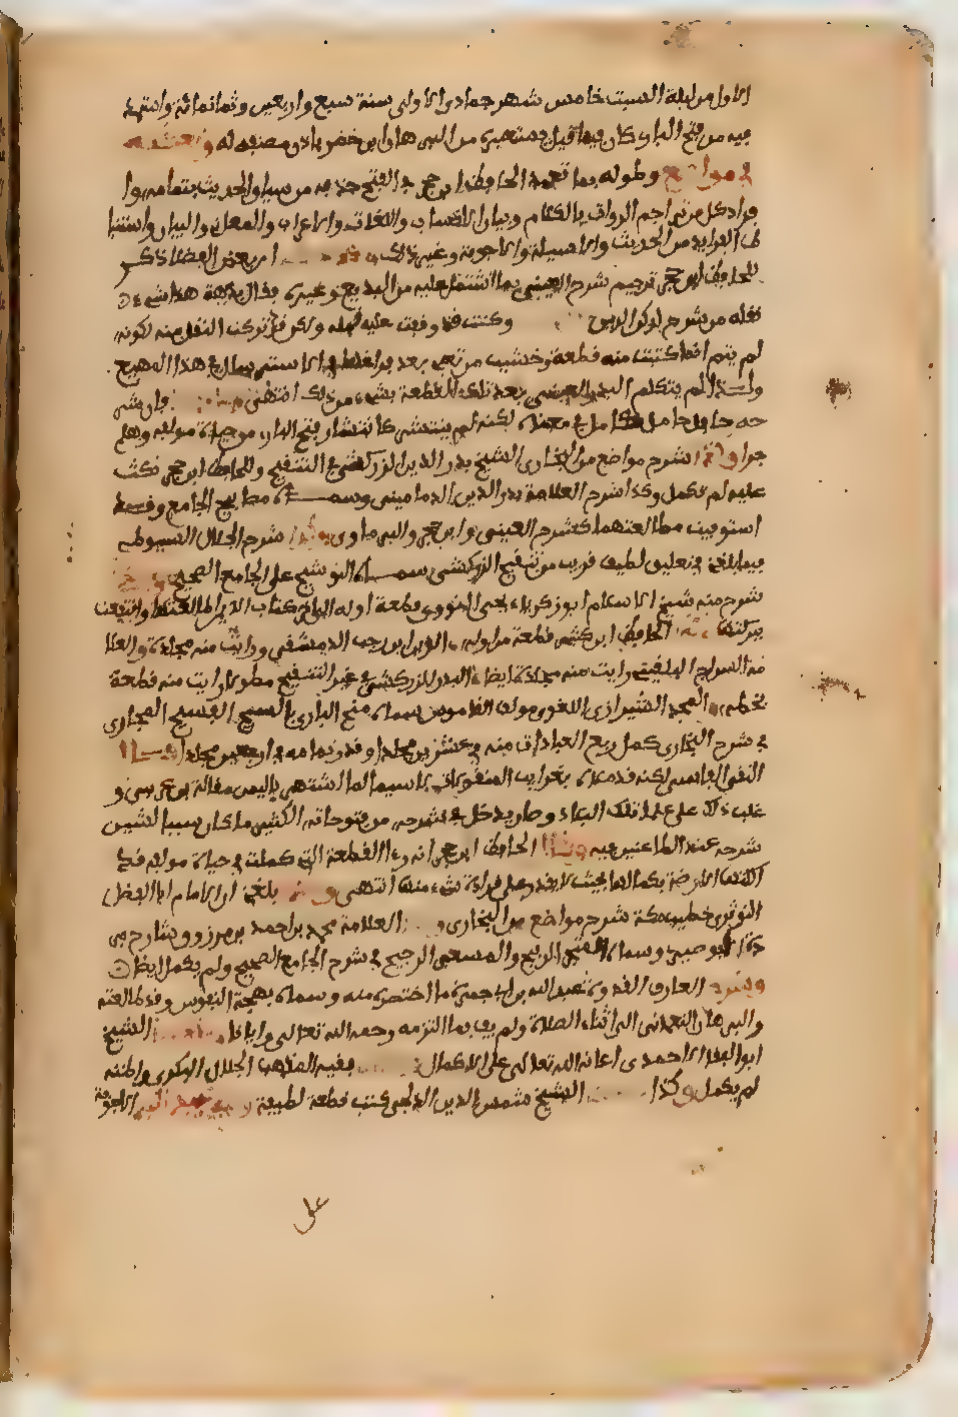 الاول من ليلة السبت خامس شهر جمادى الاولى سنة سبع واربعين وثمانمائة واستمد
فيه من فتح البارى كان فيما قيل يستعيره من البرهان ابن خضر باذن مصنفه له وتعقبه
فى مواضع وطوله بما تعمد الحافظ ابن حجر فى الفتح حذفه من سياق الحديث بتمامه وا
فراد كل من تراجم الرواة بالكلام وبيان الانساب واللغات والاعراب والمعانى والبيان واستنبا
ط الفرايد من الحديث والاسيلة والاجوبة وغير ذلك ان بعض الفضلا ذكر
للحافظ ابن حجر ترجيح شرح العينى بما اشتمل عليه من البديع وغيره بداهة هذا شىء
نقله من شرح لركن الدين وكنت قد وقفت عليه قبله ولكن تركت النقل منه لكونه
لم يتم انما كتب منه قطعة وخشيت من تعبى بعد فراغها فى الاسترسال فى هذا المهيع
ولذا لم يتكلم البدر العينى بعد تلك القطعة بشىء من ذلك انتهى فان شر
حه حافل كامل فى معناه لكنه لم ينتشر كانتشار فتح البارى من حياة مولفه وهلم
جرا وكذا شرح مواضع من البخارى الشيخ بدر الدين الزركشى فى التنقيح وللحافظ ابن حجر نكت
عليه لم تكمل وكذا شرح العلامة بدر الدين الدمامينى وسماه مصابيح الجامع وقد
استوفيت مطالعتها كشرح العينى وابن حجر والبرماوى وكذا شرح الجلال السيوطى
فيما بلغنى فى تعليق لطيف قريب من تنقيح الزركشى سماه التوشيح على الجامع الصحيح
شرح منه شيخ الاسلام ابو زكرياء يحيى النووى قطعة من اوله الى اخر كتاب الايمان طالعتها وانتفعت
ببركتها الحافظ ابن كثير قطعة من اوله والزين ابن رجب الدمشقى ورايت منه مجلدة والعلا
مة السراج البلقينى رايت منه مجلدة ايضا والبدر الزركشى فى غير التنقيح مطولا رايت منه قطعة
بخطه والمجد الشيرازى اللغوى مولف القاموس سماه منح البارى بالسيح الفسيح المجارى
فى شرح البخارى كمل ربع العبادات منه فى عشرين مجلدا وقدر تمامه فى اربعين مجلدا
التقى الفاسى لكنه قد ملاه بغرايب المنقولات لا سيما لما اشتهر باليمن مقالة بن عربى و
غلب ذلك على علماء تلك البلاد وصار يدخل فى شرحه من فتوحاته الكثير ما كان سببا لشين
شرحه عند الطاعنين فيه الحافظ ابن حجر انه رءا القطعة التى كملت فى حياة مولفه قد
اكلتها الارضة بكمالها بحيث لا يقدر على قراءة شىء منها انتهى بلغنى ان الامام ابا الفضل
النويرى خطيب مكة شرح مواضع من البخارى و العلامة محمد بن احمد بن مرزوق شارح بر
دة البوصيرى وسماه المتجر الربيح والمسعى الرجيح فى شرح الجامع الصحيح ولم يكمل ايضا
وشرح العارف القدوة عبد الله بن ابى جمرة ما اختصره منه وسماه بهجة النفوس وقد طالعته
والبرهان النعمانى الى اثناء الصلاة ولم يف بما التزمه رحمه الله تعالى وايانا الشيخ
ابو البقاء الاحمدى اعانه الله تعالى على الاكمال فقيه المذهب الجلال البكرى واظنه
لم يكمل وكذا الشيخ شمس الدين الدلجى كتب قطعة لطيفة الاجوبة
على